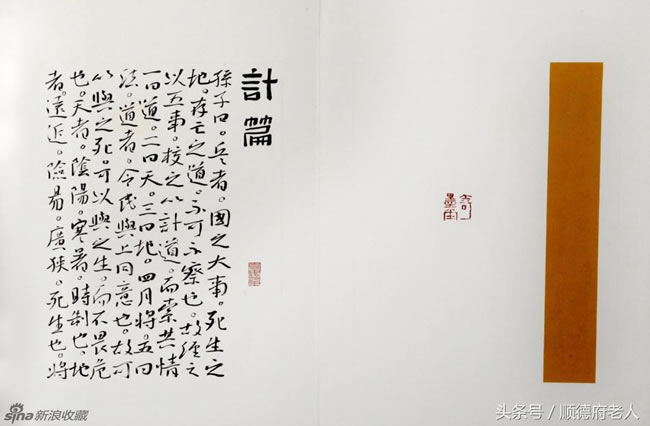 計篇
孫子曰。兵者。國之大事。死生之
地。存亡之道。不可不察也。故經之
以五事。校之以計道。而索其情
一曰道。二曰天。三曰地。四曰將。五曰
法。道者。令民與上同意也。故可
以與之死。可以與之生。而不畏危
也。天者。陰陽。寒暑。時制也。地
者。遠近。險易。廣狹。死生也。將
sina新浪收藏
头条号 / 顺德府老人